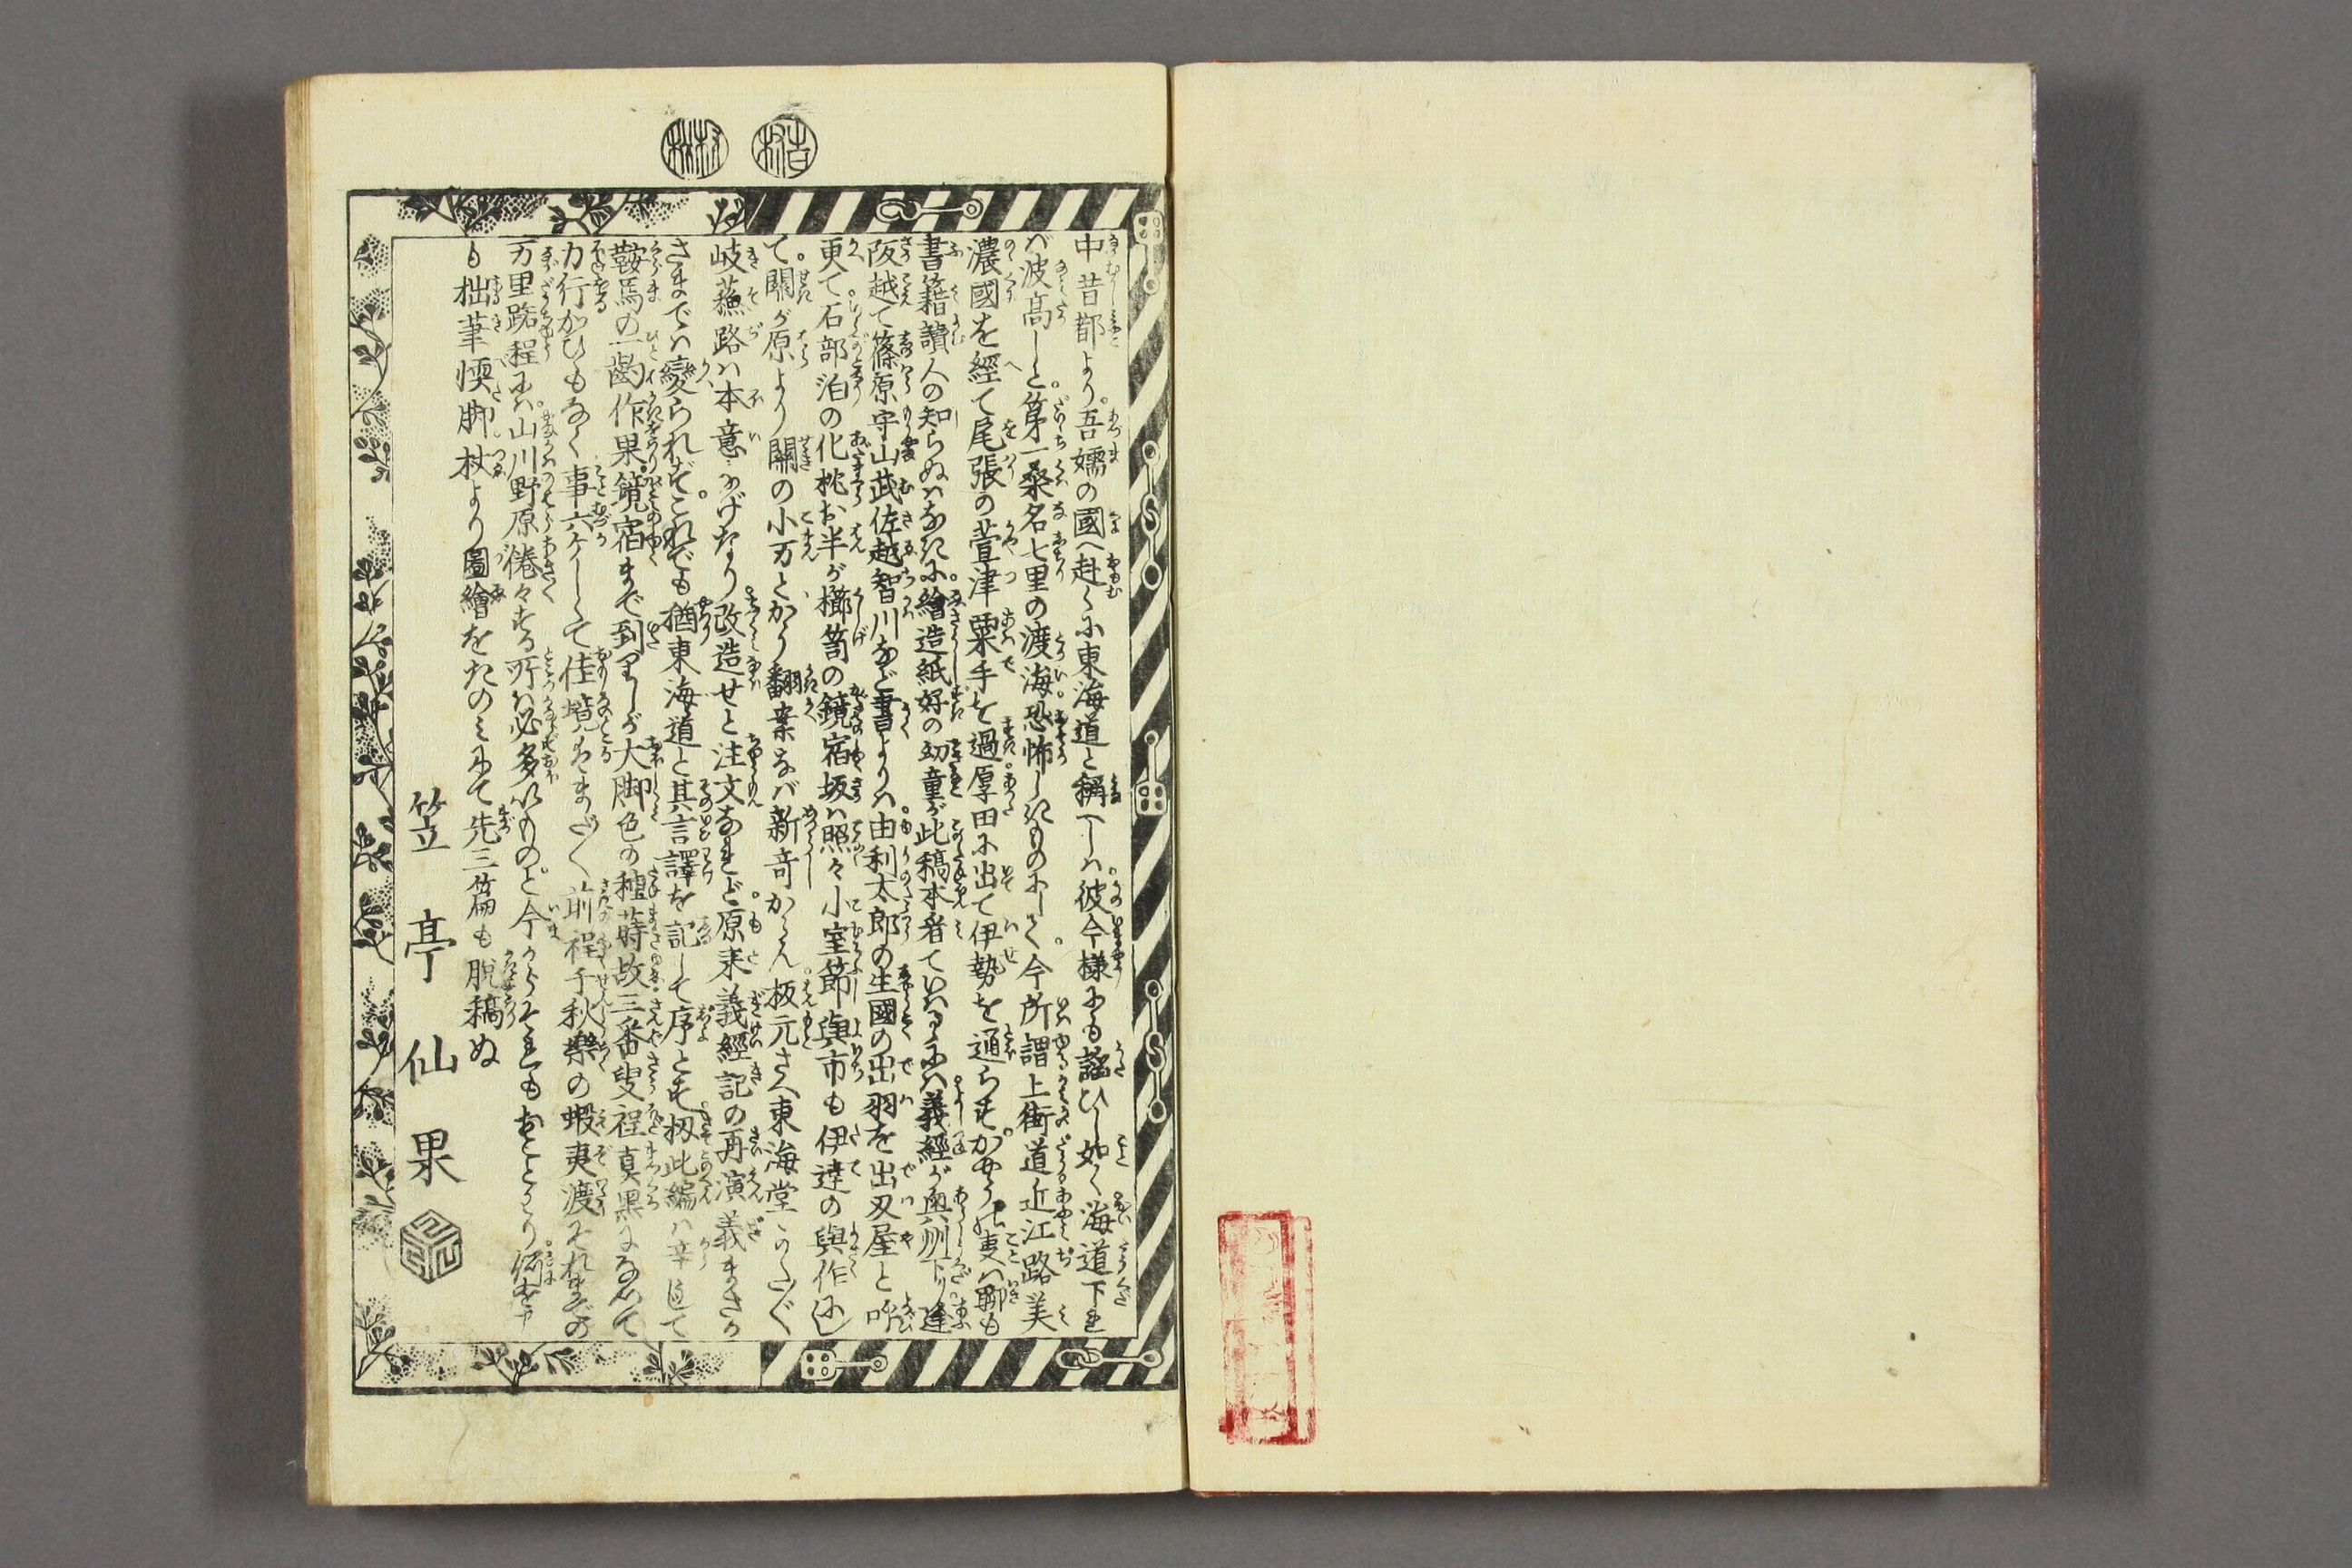 村吉
村松
中昔都より。吾嬬の國へ赴くに東海道と稱へしハ。彼今様にも謡ひし如く海道下りとい
バ波高しと。第一桑名七里の渡海。恐怖しきものにして。今所謂上街道近江路美
濃國を經て尾張の萱津粟手を過。厚田に出て伊勢を通らず。かやうの叓ハ聊も
書籍讀人の知らぬハなきに。繪造紙好の幼童が此稿本看ていハるゝにハ。義經が奥州下り。逢
阪越て篠原守山武佐越智川など書くよりハ。由利太郎の生國の出羽を出刄屋と呼
更て。石部泊の化桃お半が櫛笥の鏡宿坂ハ照々小室節。與市も伊達の與作にし
て。關が原より關の小万とかう翻案なバ新奇からん。板元さへ東海堂。かた〴〵
岐蘓路ハ本意なげなり。改造せと注文なれど。原来義經記の再演義。まさか
さまでハ變られず。これでも猶東海道と其言譯を記して序とす。扨此編ハ辛じて
鞍馬の一齣作果。鏡宿まで到りしが。大脚色の種蒔故。三番叟程真黒になつて
力行かひもなく。事六ケしくて佳境はまだ〳〵。前程千秋樂の蝦夷渡。それまでの
万里路程にハ。山川野原倦々する所ハ必多いものと。今からそれも
も拙筆慄脚杖より圖繪をたのミにて先三篇も脱稿ぬ
笠亭仙果